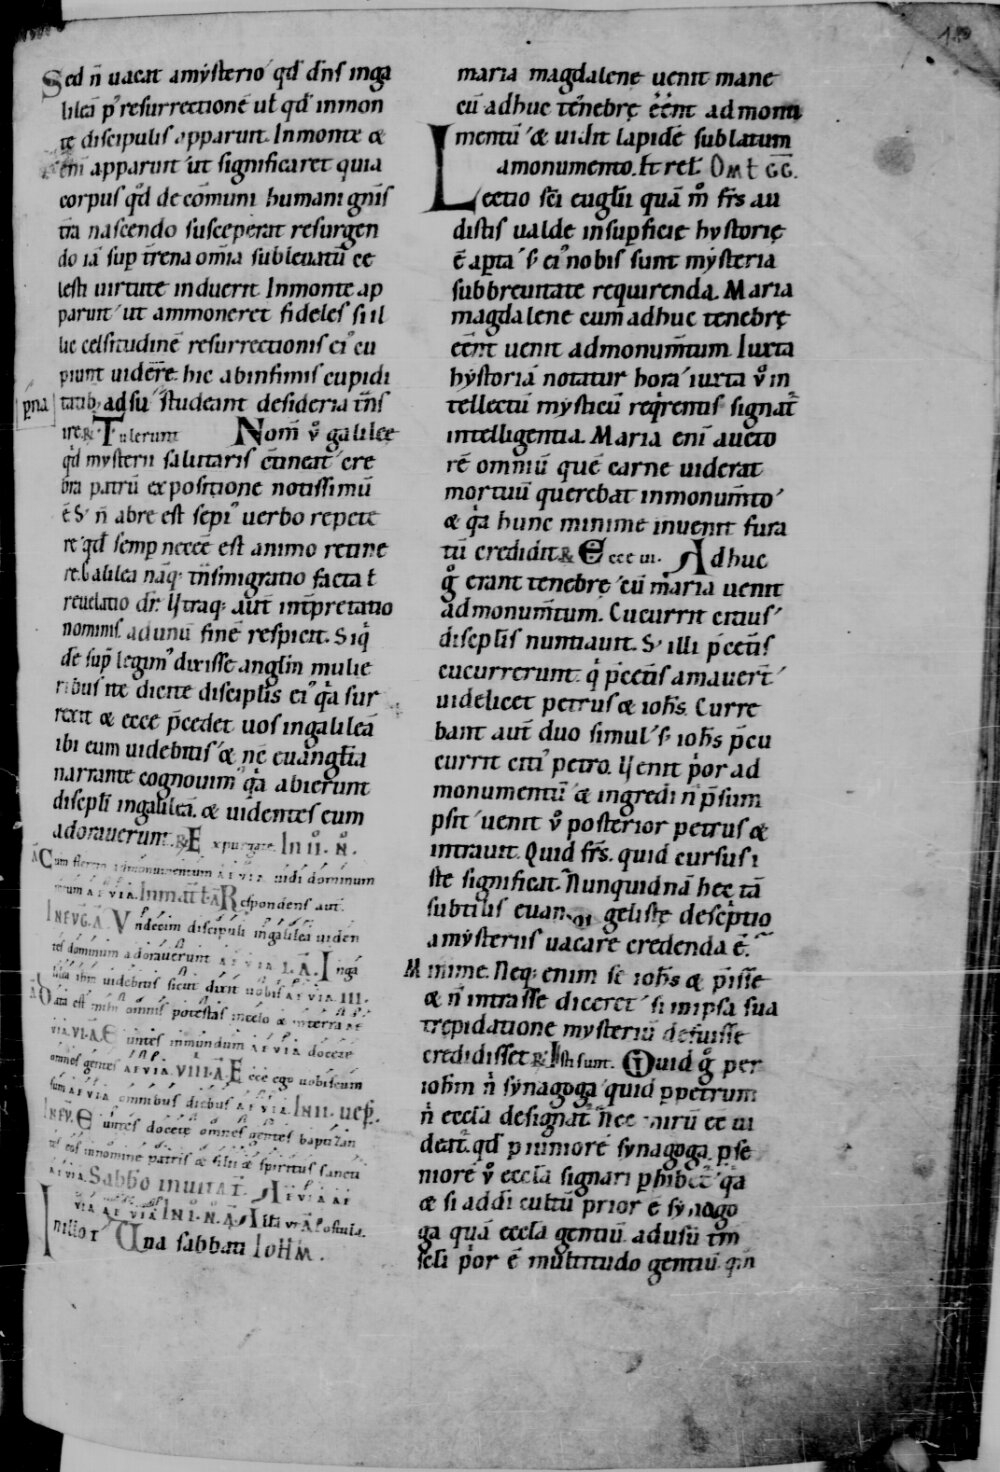 Sed n̄ uacat amẏsterio qd̄ dn̄s inga
lileā p̱ resurrectionē ut̄ qd̄ inmon
te discipulis apparuit. Inmonte &
eni apparuit ut significaret quia
corpus qd̄ de cōmuni humani gn̄is
tr̄a nascendo susceperat resurgen
do iā sup tr̄ena om̄ia subleuatū ce
lesti uirtute induerit. Inmonte ap
paruit ut ammoneret fideles si il
lic celsitudinē resurrectionis ei᾿ cu
piunt uidere. hic abinfimis cupidi
tatib; adsu studeant desideria tn̄s
ire. & Tulerunt Nom̄ v̊ galileę
qd̄ mysterii salutaris c̄tineat cre
bra patrū expositione notissimū
ē S; n̄ abre est sepi᾿ uerbo repete
re qd̄ semp̱ necee est animo retine
re. Galilea nāq; tn̄smigratio facta ł
reuelatio dr̄. Utraq; aut̄ int̄pretatio
nominis. adunū finē respicit. Siq̇
dē sup̄ legim᾿ dixisse anglm mulie
ribus ite dicite disciplis ei᾿ q̇a sur
rexit & ecce p̄cedet uos ingalileā
ibi eum uidebitis & nē euangl̄ia
narrante cognouim᾿ q̇a abierunt
discipl̄i ingalileā. & uidentes eum
adorauerunt. & Expurgate. In II. N̊.
Cum flerem admonumentum AEVIA uidi dominum
meum AEVIA. Inmat̄ t̄. A Respondens aut̄.
INEVG. A. Vndecim discipuli ingalilea uiden
tes dominum adorauerunt AEVIA I. A. Inga
lilea ibm uidebitis sicut dixit uobis AEVIA III.
A Data est mihi omnis potestas incelo & interra AE
VIA. VI. A. Euntes inmundum AEVIA docete
omnes gentes AEVIA. VIII. A. Ecce ego uobiscum
sum AEVIA omnibus diebus AEVIA. IN II. uesp̄.
INEV. Euntes docete omnes gentes baptizan
tes eos innomine patris & filii & spiritus sancti
AEVIA. Sabbo inuitat. AEVIA AE
VIA AE VIA. IN I. N. A. Ista
In illo t̄ Una sabbati IoHM.
maria magdalene uenit mane
cū adhuc tenebrę eēnt admonu
mentū & uidit lapidē sublatum
amonumento. Et rel. OMt GG.
Lectio sc̄i eugl̄ii quā m̊ frs̄ au
distis ualde insup̱ficie hystorię
ē ap̱ta s; ei᾿ nobis sunt mẏsteria
subbreuitate requirenda. Maria
magdalene cum adhuc tenebrę
eēnt uenit admonum̄tum Iuxta
hẏstoriā notatur hora iuxta v̊ in
tellectū mysticū reqr̄entis signat̄
intelligentia. Maria eni aucto
rē omniū quē carne uiderat
mortuū querebat inmonum̄to
& q̇a hunc minime inuenit fura
tū credidit. & Ecce ui. Adhuc
g̊ erant tenebrę cū maria uenit
admonum̄tum. Cucurrit citius
discpl̄is nuntiauit. S; illi p̄ceti̅s
cucurrerunt q̇ p̄ceti̅s amauert̄
uidelicet petrus & iohs̄. Curre
bant aut̄ duo simul s; iohs̄ p̄cu
currit citi᾿ petro. Uenit p̊or ad
monumentū & ingredi n̄ p̄sum
psit uenit v̊ posterior petrus &
intrauit. Quid frs̄. quid cursus i
ste significat. Nunquid nā hec tā
subtilis euan geliste descp̄tio
amysteriis uacare credenda ē.
Minime. Neq; enim se iohs̄ & p̄isse
& n̄ intrasse diceret si inipsa sua
trepidatione mysteriū defuisse
credidisset & Isti sunt. Quid g̊ per
iohm̄ n̊ sẏnagoga quid p̱ petrum
n̊ eccl̄a designat̄. Nec mirū eē ui
deat̄. qd̄ p̱ iuniorē synagoga. p̱ se
niorē v̊ eccl̄a signari p̱hibet̄ q̇a
& si addi cultū prior ē sẏnago
ga quā eccl̄a gentiū. adusū tm̄
scl̄i p̊or ē multitudo gentiū qm̄